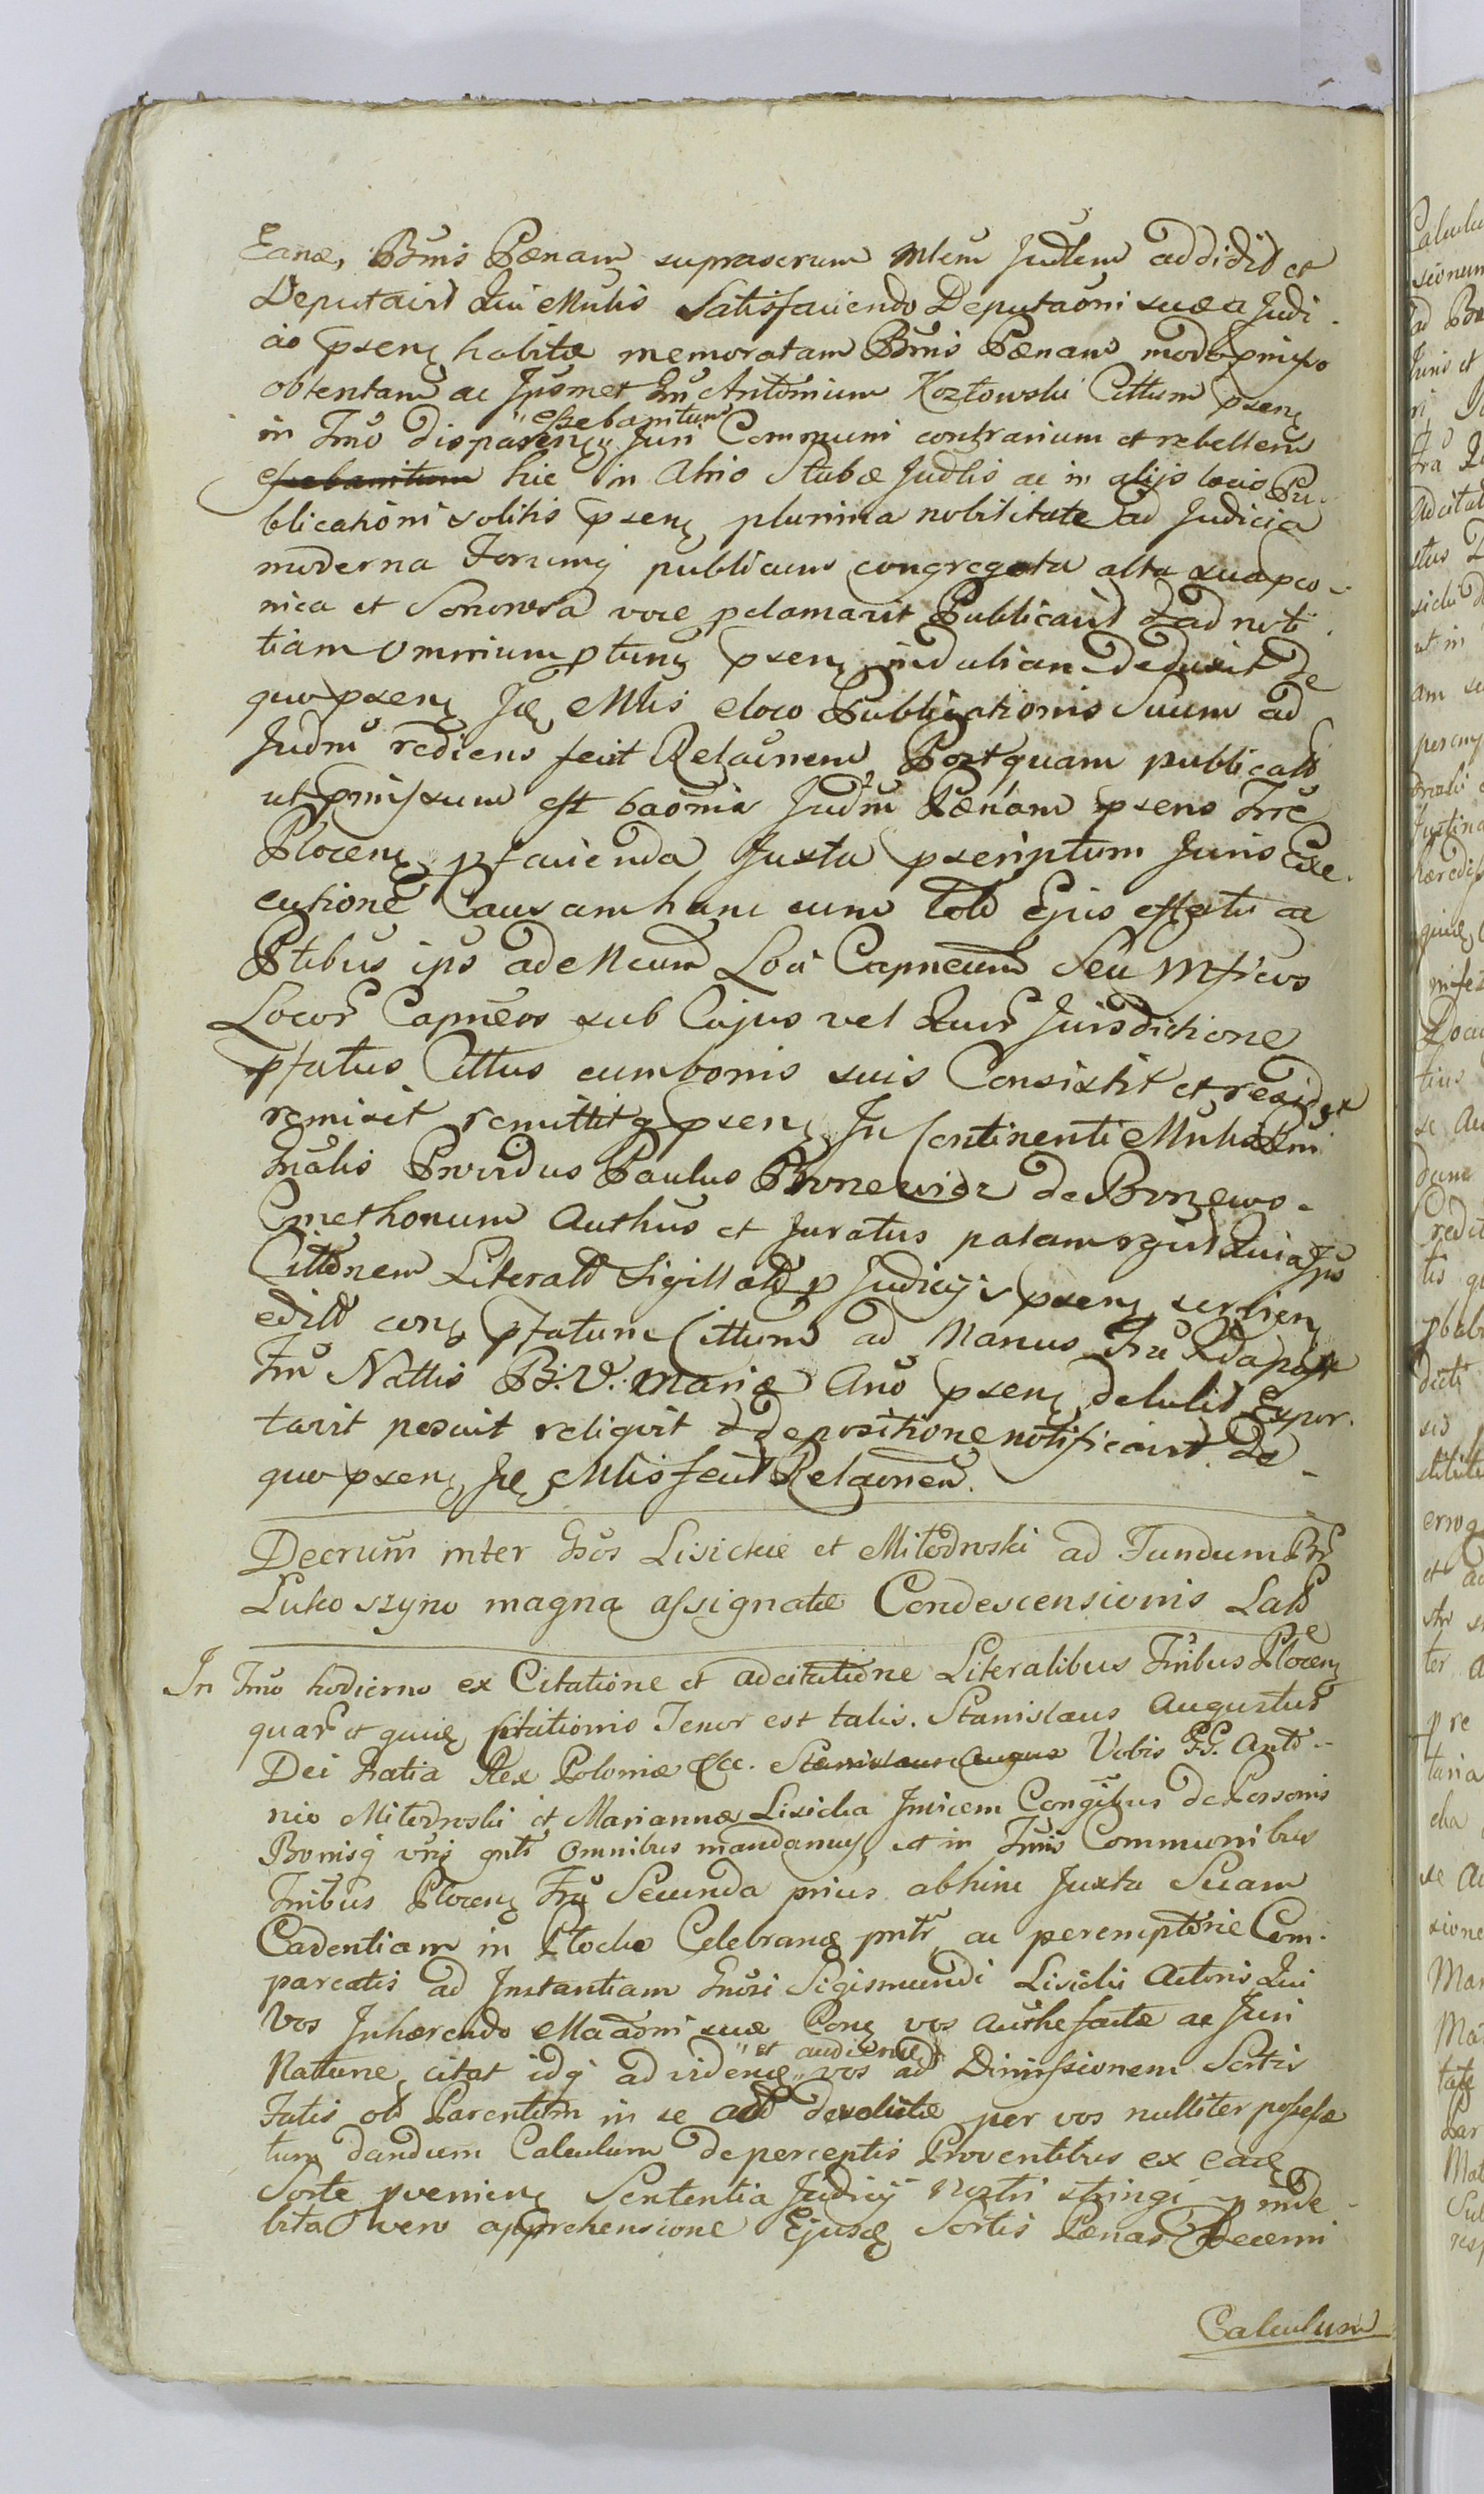 Eanæ, Bnis Pænam suprascrum Mlem Judlem addidit et
Deputavit Qui Mnlis Satisfaciendo Deputaoni suæ a Judi-
cio psenq habitæ memoratam Bnis Pænam modo pmisso
obtentam ac Ipsmet Gn Antonium Kozłowski Cittum psenq
in Tmo disparenq "essebanitum" Juri Communi contrarium et rebellem
hic in Atrio Stubæ Judlis ac in alijs locis Pu-
blicationi solitis psenq plurima nobilitate ad Judicia
moderna Forumq publicum congregata alta sua pco-
nica et Sonorosa voce pclamavit Publicavit & ad noti-
tiam omnium ptunq psenq indubian deduxit De
quo psenq Jcq Mlis e loco Publicationis Suum ad
Judm rediens fecit Relaonem Postquam publicatt
ut pmissum est baonia Judm Pænam psens Trre
Plocenq p facienda Juxta pscriptum Juris Exe-
cutione Causam hanc cum toto Ejus effectu ac
Ptibus ips ad Mcum Loci Capneum Seu Mficos
Locor Capneos sub Cujus vel Quor Jurisdictione
pfatus Cittus cum bonis suis Consistit et residet
remisit remittitq psenq In Continenti Mnlis
Gnalis Providus Paulus Bronewicz de Bronewo
Cmethonum Authus et Juratus palam rgvit Quia Ips
Cittonem Literatt Sigillatt p Judicijs psenq servien
editt conq pfatum Cittum ad Manus Fra 2da post
Fm Nattis B: V: Mariæ Ano psenq detulit Expor-
tavit posuit reliquit & depositione notificavit De
quo psenq Jcq Mlis fecit Relaonem.
Decrum inter Gsos Lisickie et Miłodroski ad Fundum Br
Lukoszyno magna assignatæ Condescensionis Latt
In Tmo hodierno ex Citatione et adcitatione Literalibus Tribus Plocenq
quar et quiuq Citationis Tenor est talis. Stanislaus Augustus
Dei Gratia Rex Poloniæ &c. Stanislaus Augus Vobis GG. Anto-
nio Miłodroski et Mariannæ Lisicka Invicem Congibus de Personis
Bonisq vris gntr Omnibus mandamus, ut in Tmis Communibus
Tribus Plocenq Fra Secunda prius abhinc Juxta Suam
Cadentiam in Płocko Celebranq pntr ac peremptorie Com-
pareatis ad Instantiam Gnosi Sigismundi Lisicki Actoris Qui
Vos Inhærendo Maaoni suæ Conq vos Authe factæ ac Juri
Naturæ, citat idq ad videnq "et audienq" vos ad Dimissionem Sortis
Fatis ott Parentum in se actt devolutæ per vos nulliter possessæ
tum dandum Calculum de perceptis Proventibus ex eadq
Sorte pvenienq Sententia Judicij Nostri stringi p inde-
bita vero apprehensione Ejusdq Sortis Pænas Decerni
Calculum